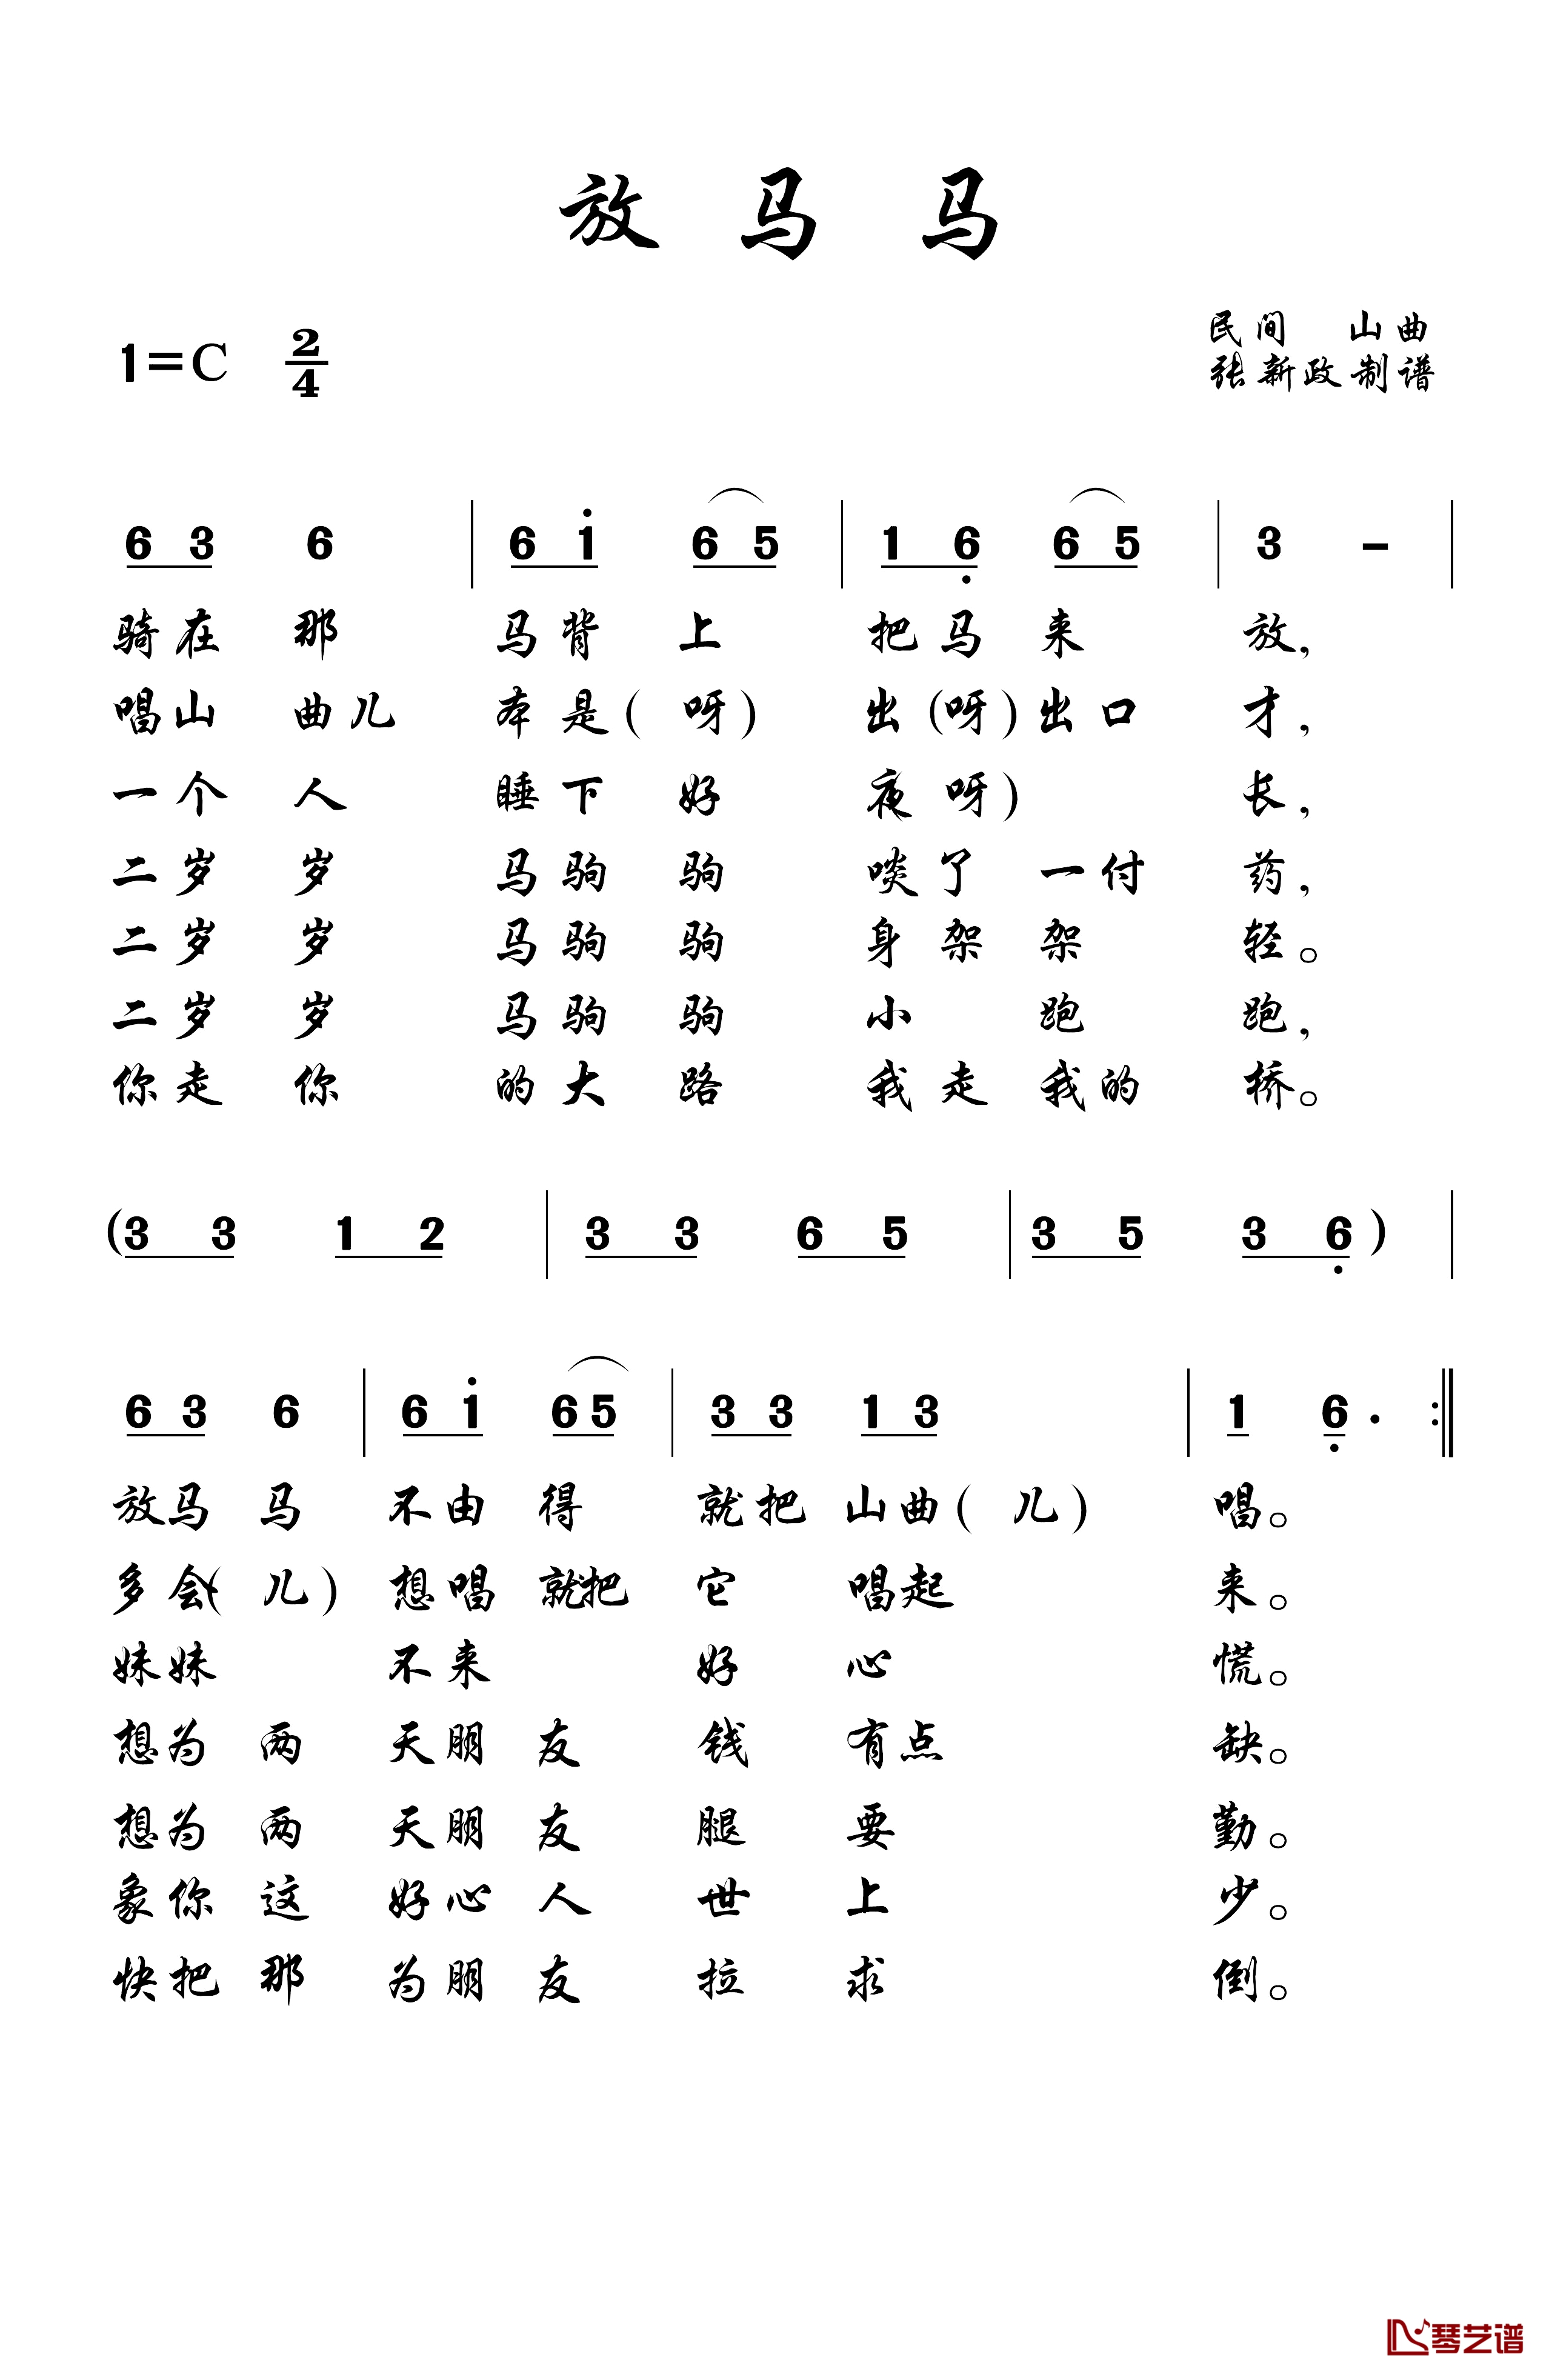 放马马
1=C 2/4
民间 山曲
张新政制谱
6 3 6 | 6 i 6 5 | 1 6 6 5 | 3 – |
骑在那 马背上 把马来 放,
唱山曲儿 本是(呀) 出(呀)出口 才,
一个人 睡下好 夜呀) 长,
二岁岁 马驹驹 啖了一付 药,
二岁岁 马驹驹 身架架 轻。
二岁岁 马驹驹 小跑 跑,
你走你 的大路 我走我的 桥。
(3 3 1 2 | 3 3 6 5 | 3 5 3 6) |
6 3 6 | 6 i 6 5 | 3 3 1 3 | 1 6 · :‖
放马马 不由得 就把山曲(儿) 唱。
多会(儿) 想唱就把 它唱起 来。
妹妹 不来 好心 慌。
想为两 天朋友 钱有点 缺。
想为两 天朋友 腿要 勤。
象你这 好心人 世上 少。
快把那 为朋友 拉求 倒。
琴艺谱